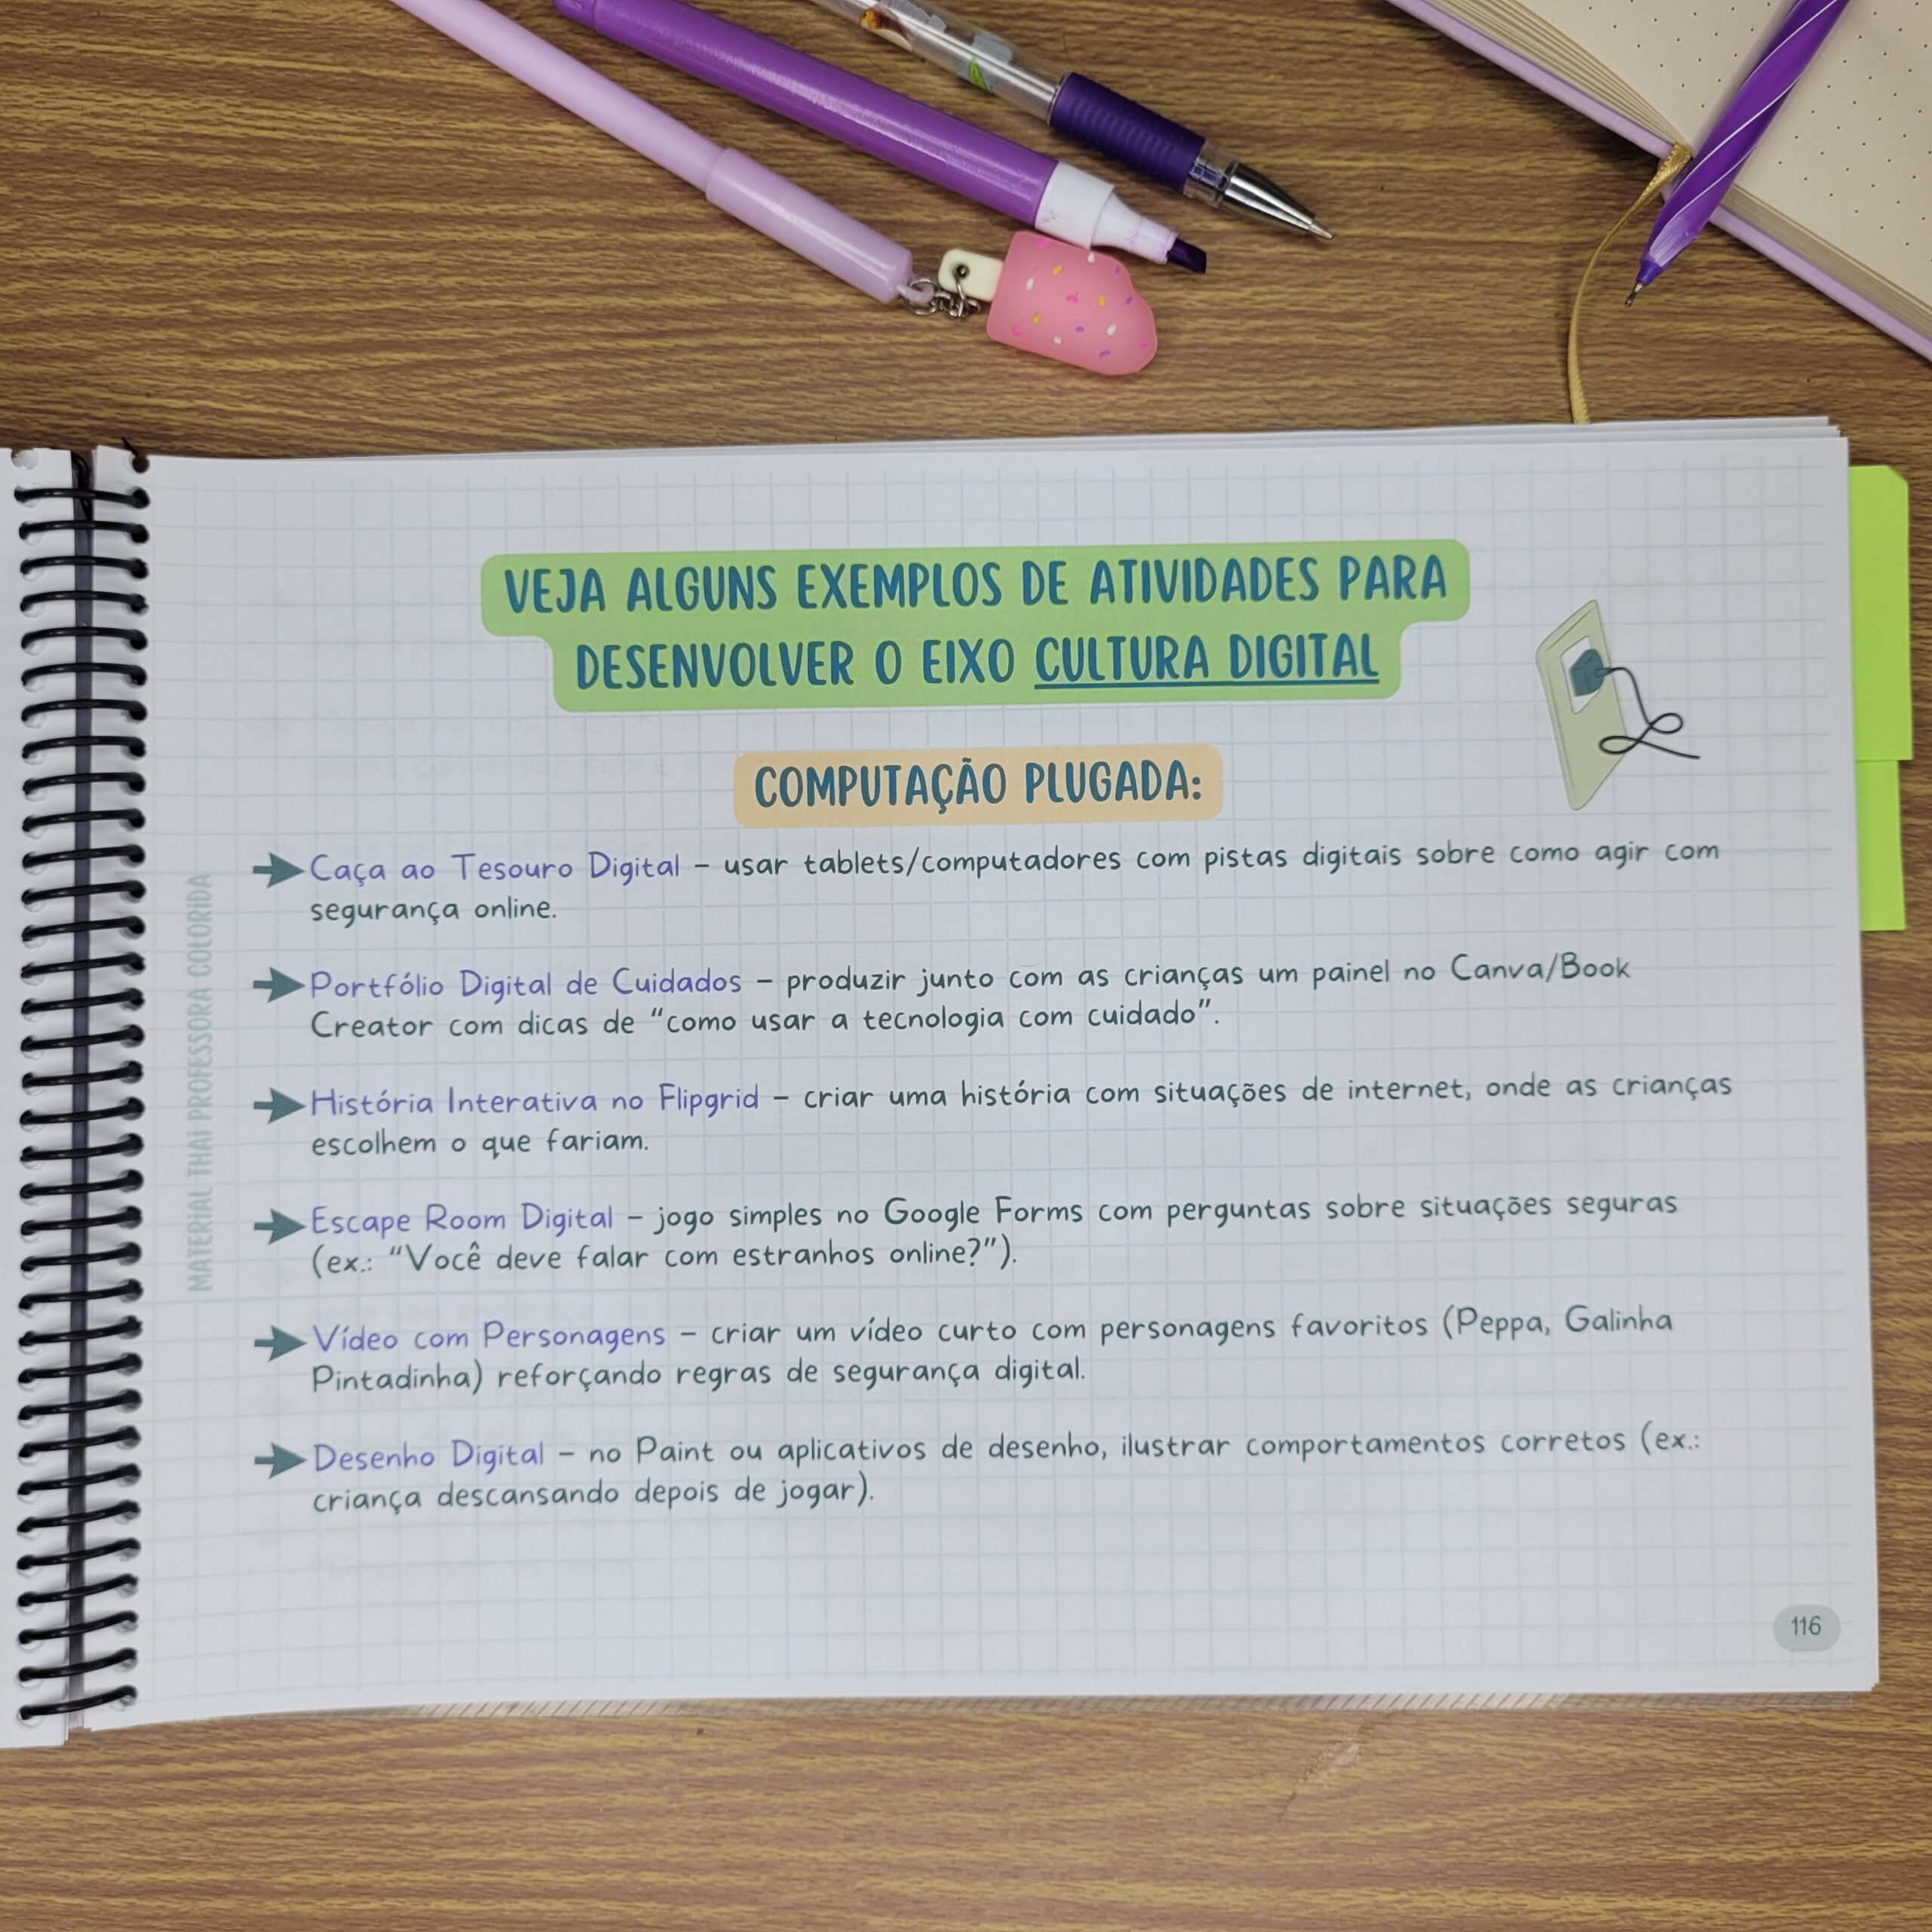 VEJA ALGUNS EXEMPLOS DE ATIVIDADES PARA
DESENVOLVER O EIXO CULTURA DIGITAL
COMPUTAÇÃO PLUGADA:
Caça ao Tesouro Digital – usar tablets/computadores com pistas digitais sobre como agir com
segurança online.
Portfólio Digital de Cuidados – produzir junto com as crianças um painel no Canva/Book
Creator com dicas de “como usar a tecnologia com cuidado”.
História Interativa no Flipgrid – criar uma história com situações de internet, onde as crianças
escolhem o que fariam.
Escape Room Digital – jogo simples no Google Forms com perguntas sobre situações seguras
(ex.: “Você deve falar com estranhos online?”).
Vídeo com Personagens – criar um vídeo curto com personagens favoritos (Peppa, Galinha
Pintadinha) reforçando regras de segurança digital.
Desenho Digital – no Paint ou aplicativos de desenho, ilustrar comportamentos corretos (ex.:
criança descansando depois de jogar).
MATERIAL THAI PROFESSORA COLORIDA
116